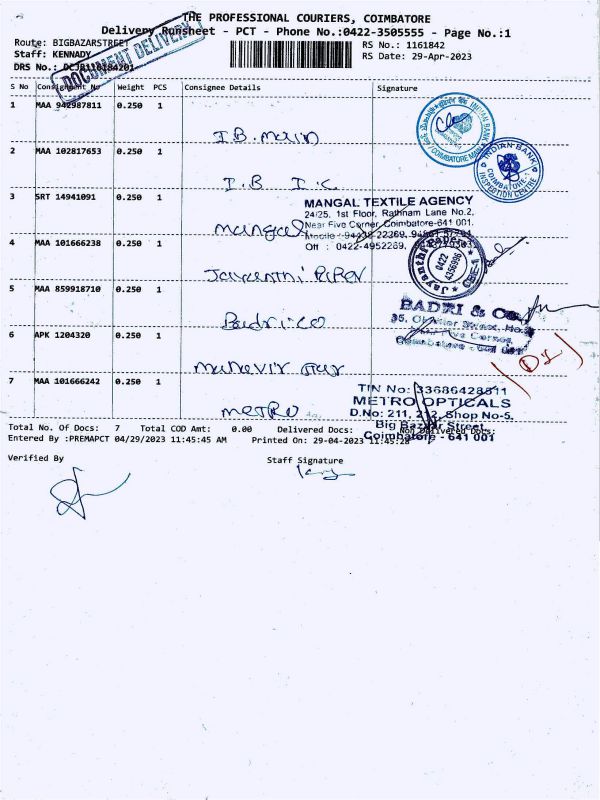 THE PROFESSIONAL COURIERS, COIMBATORE
Delivery Runsheet - PCT - Phone No.:0422-3505555 - Page No.:1
Route: BIGBAZARSTREET
RS No.: 1161842
Staff: KENNADY
RS Date: 29-Apr-2023
DRS No.:
DOCUMENT DELIVERY
S No Consignment No Weight PCS Consignee Details Signature
1 MAA 942987811 0.250 1
I.B. Main
INDIAN BANK
COIMBATORE MAIN
2 MAA 102817653 0.250 1
I.B I.C
INDIAN BANK
COIMBATORE-1
INSPECTION CENTRE
3 SRT 14941091 0.250 1
mangal
MANGAL TEXTILE AGENCY
24/25, 1st Floor, Rathnam Lane No.2,
Near Five Corner, Coimbatore-641 001.
Off : 0422-4952269,
4 MAA 101666238 0.250 1
Jayanthi Paper
Jayanthi Paper
0422
4356996
CBE-1
5 MAA 859918710 0.250 1
Badri co
BADRI & Co.
Five Corner,
6 APK 1204320 0.250 1
7 MAA 101666242 0.250 1
metro
TIN No: 33686428811
METRO OPTICALS
D.No: 211, 212, Shop No-5,
Big Bazaar Street,
Coimbatore - 641 001
Total No. Of Docs: 7 Total COD Amt: 0.00 Delivered Docs: Non Delivered Docs:
Entered By :PREMAPCT 04/29/2023 11:45:45 AM Printed On: 29-04-2023 11:45:28
Verified By
Staff Signature